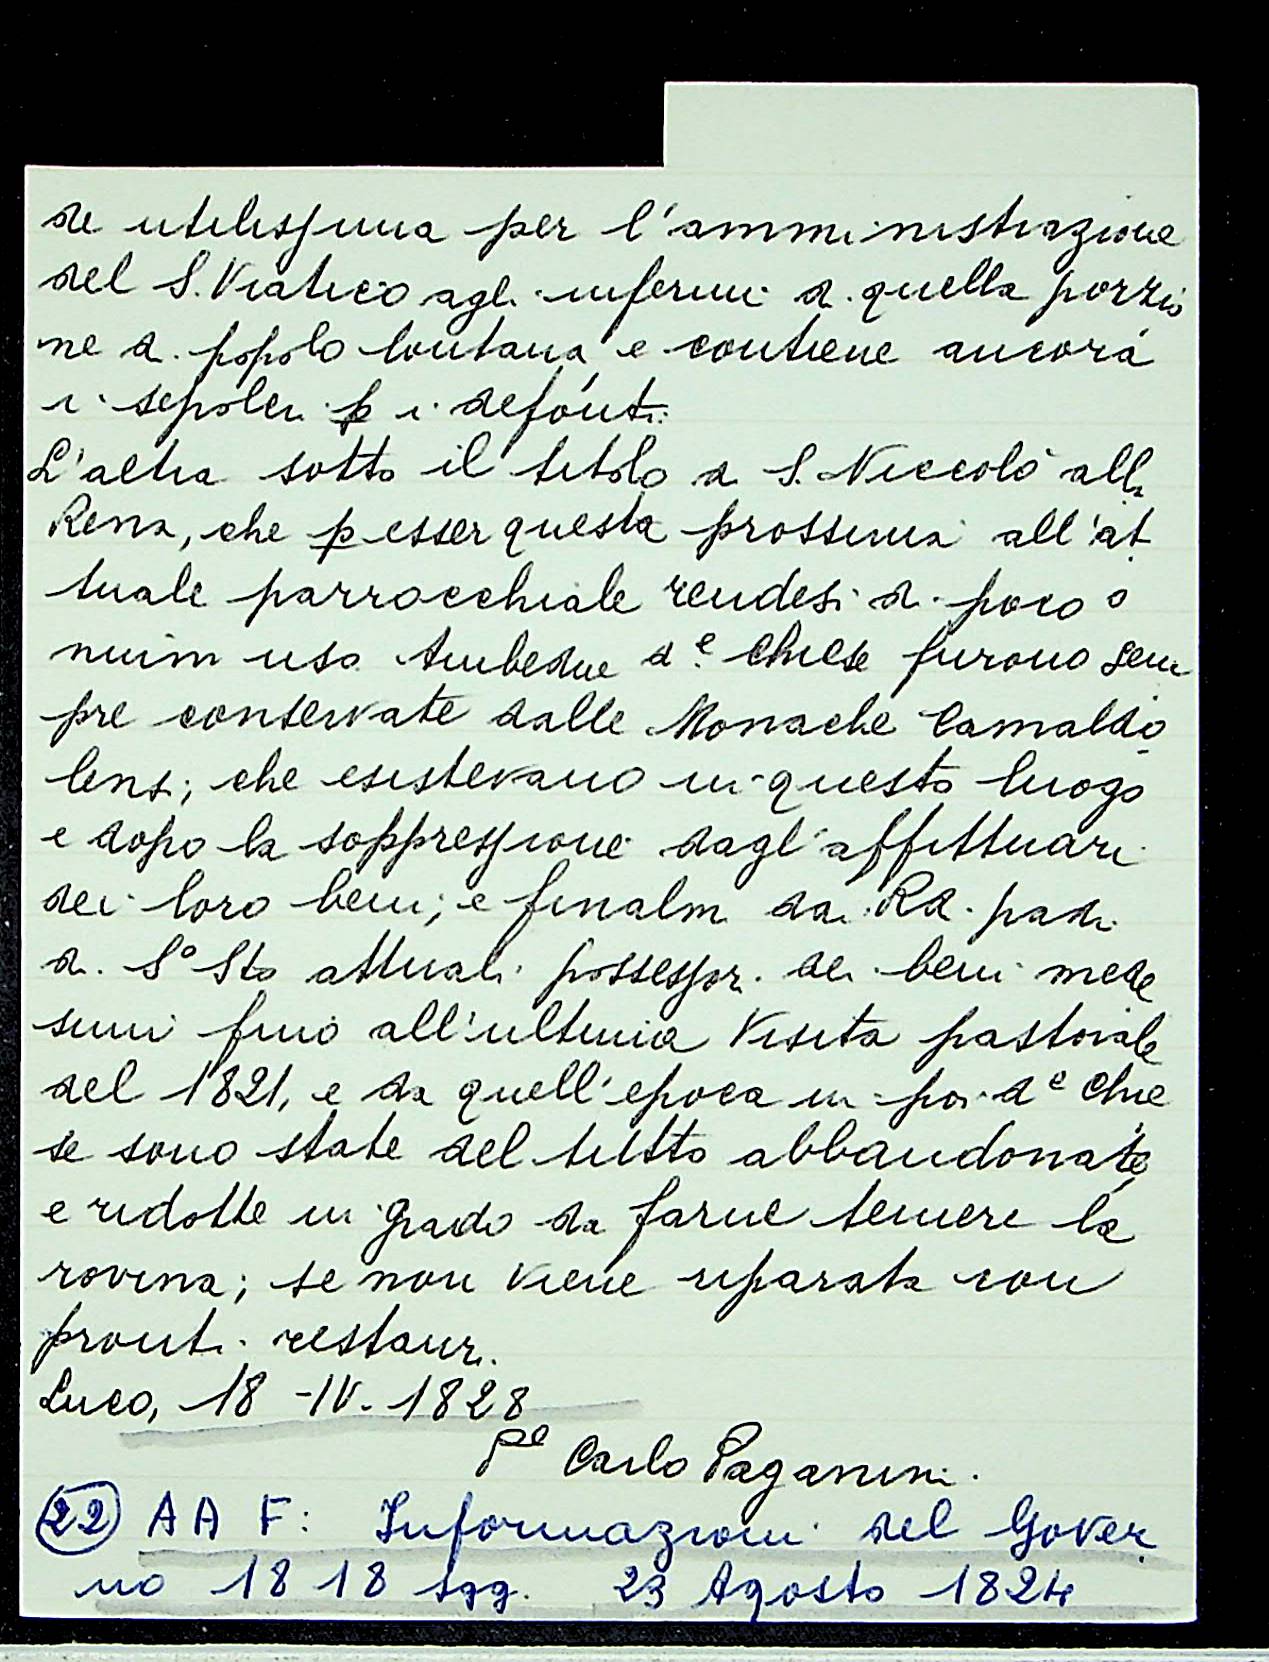 de utilissima per l'amministrazione
del S. Viatico agl'infermi di quella porzio
ne di popolo lontana, e contiene ancora
i sepolcri p i defonti.
L'altra sotto il titolo di S. Niccolò alla
Rena, che p esser questa prossima all'at
tuale parrocchiale rendesi di poco o
niuim uso. Ambedue de chiese furono sem
pre conservate dalle Monache Camaldo
lensi; che esistevano in questo luogo
e dopo la soppressione dagl'affittuari
dei loro beni; e finalm dai Rd. padri
di So Sto attuali possessori dei beni mede
simi fino all'ultima Visita pastorale
del 1821, e da quell'epoca in poi de chie
se sono state del tutto abbandonate,
e ridotte in grado da farne temere la
rovina; se non viene riparata con
pronti restauri.
Luco, 18-IV-1828
Pe Carlo Paganini.
22 AAF: Informazioni del Gover
no 1818 sgg. 23 Agosto 1824